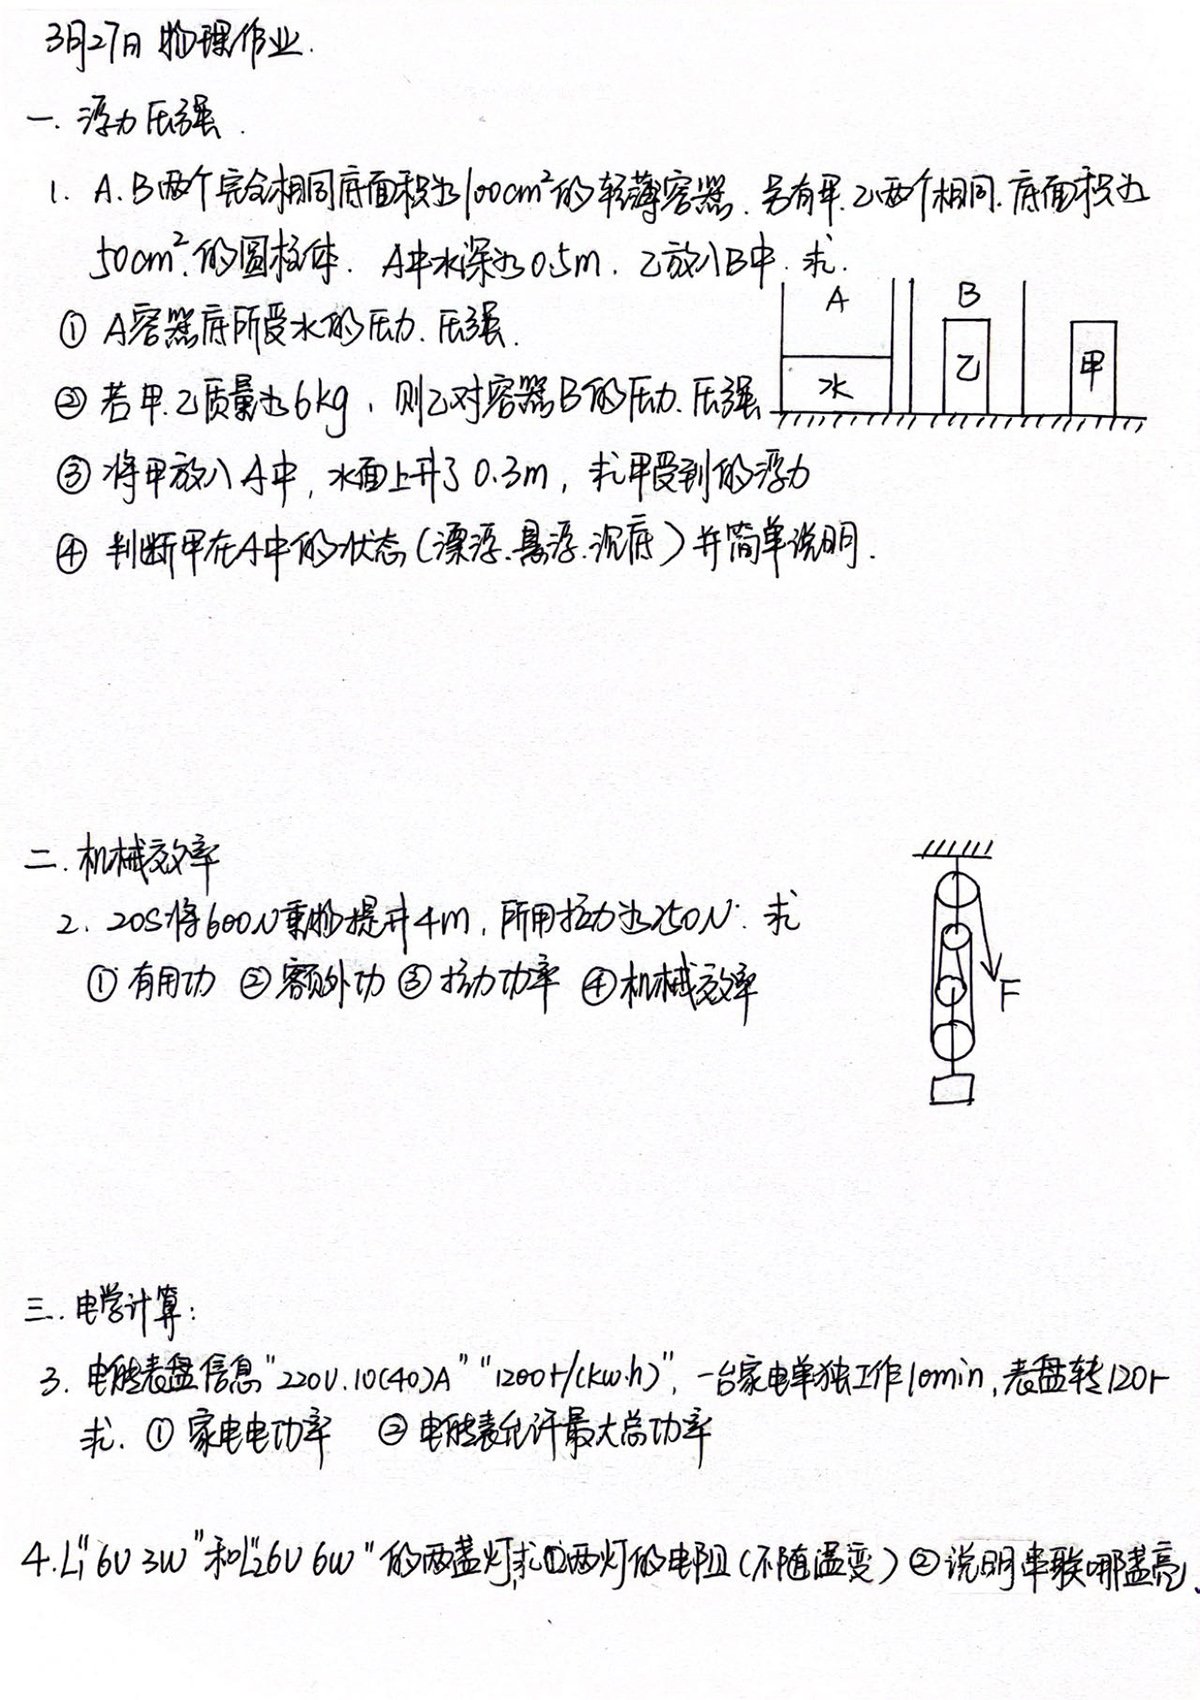 3月27日 物理作业.
一. 浮力压强.
1. A.B两个完全相同底面积为100cm²的轻薄容器. 另有甲.乙两个相同.底面积为
50cm².的圆柱体. A中水深为0.5m. 乙放入B中. 求.
① A容器底所受水的压力.压强.
② 若甲.乙质量为6kg, 则乙对容器B的压力.压强
③ 将甲放入A中, 水面上升了0.3m, 求甲受到的浮力
④ 判断甲在A中的状态(漂浮.悬浮.沉底)并简单说明.
A
B
水
乙
甲
二. 机械效率
2. 20S将600N重物提升4m, 所用拉力为250N. 求
① 有用功 ② 额外功 ③ 拉力功率 ④ 机械效率
F
三. 电学计算:
3. 电能表盘信息"220V.10(40)A" "1200r/(kw.h)", 一台家电单独工作10min, 表盘转120r
求. ① 家电电功率 ② 电能表允许最大总功率
4. L₁"6V 3W"和L₂"6V 6W"的两盏灯,求①两灯的电阻(不随温变)②说明串联哪盏亮.